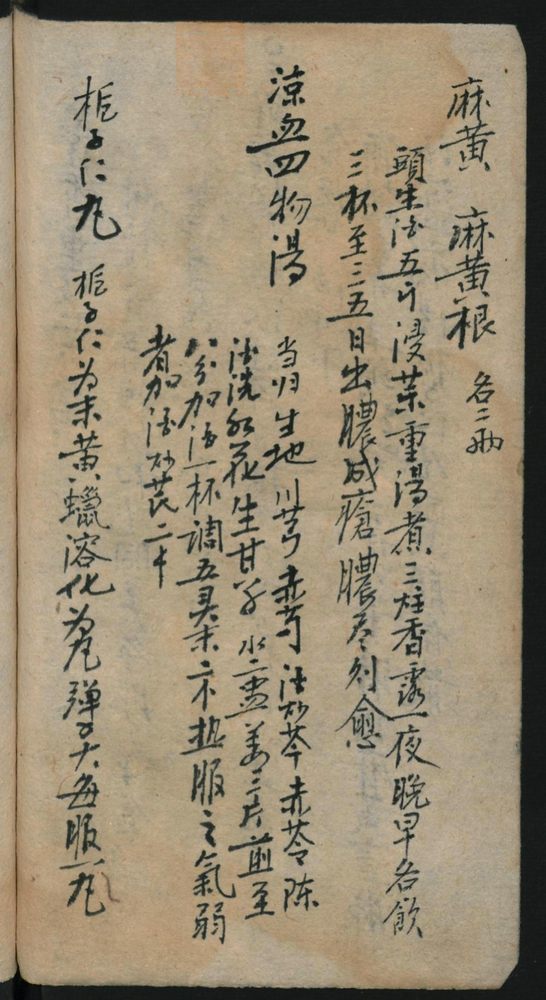 麻黄 麻黄根 各二両
頭生酒五斤浸薬重湯煮三炷香露一夜晚早各飲
三杯至三五日出膿成瘡膿尽則愈
涼血四物湯
当归生地川芎赤芍酒炒芩赤苓陈
酒洗红花生甘草水二盏姜三片煎至
八分加酒一杯調五灵末二不热服之氣弱
者加酒炒芪二不
栀子仁丸 栀子仁为末黄蠟溶化为丸弹子大每服一丸